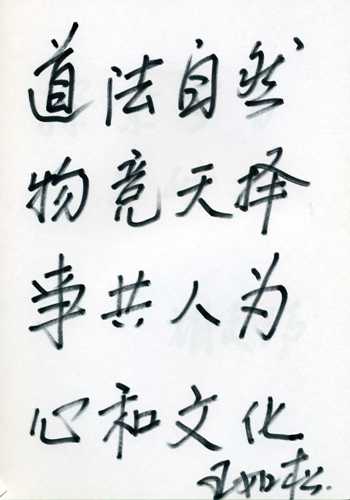 道法自然
物竞天择
事共人为
心和文化
王如松